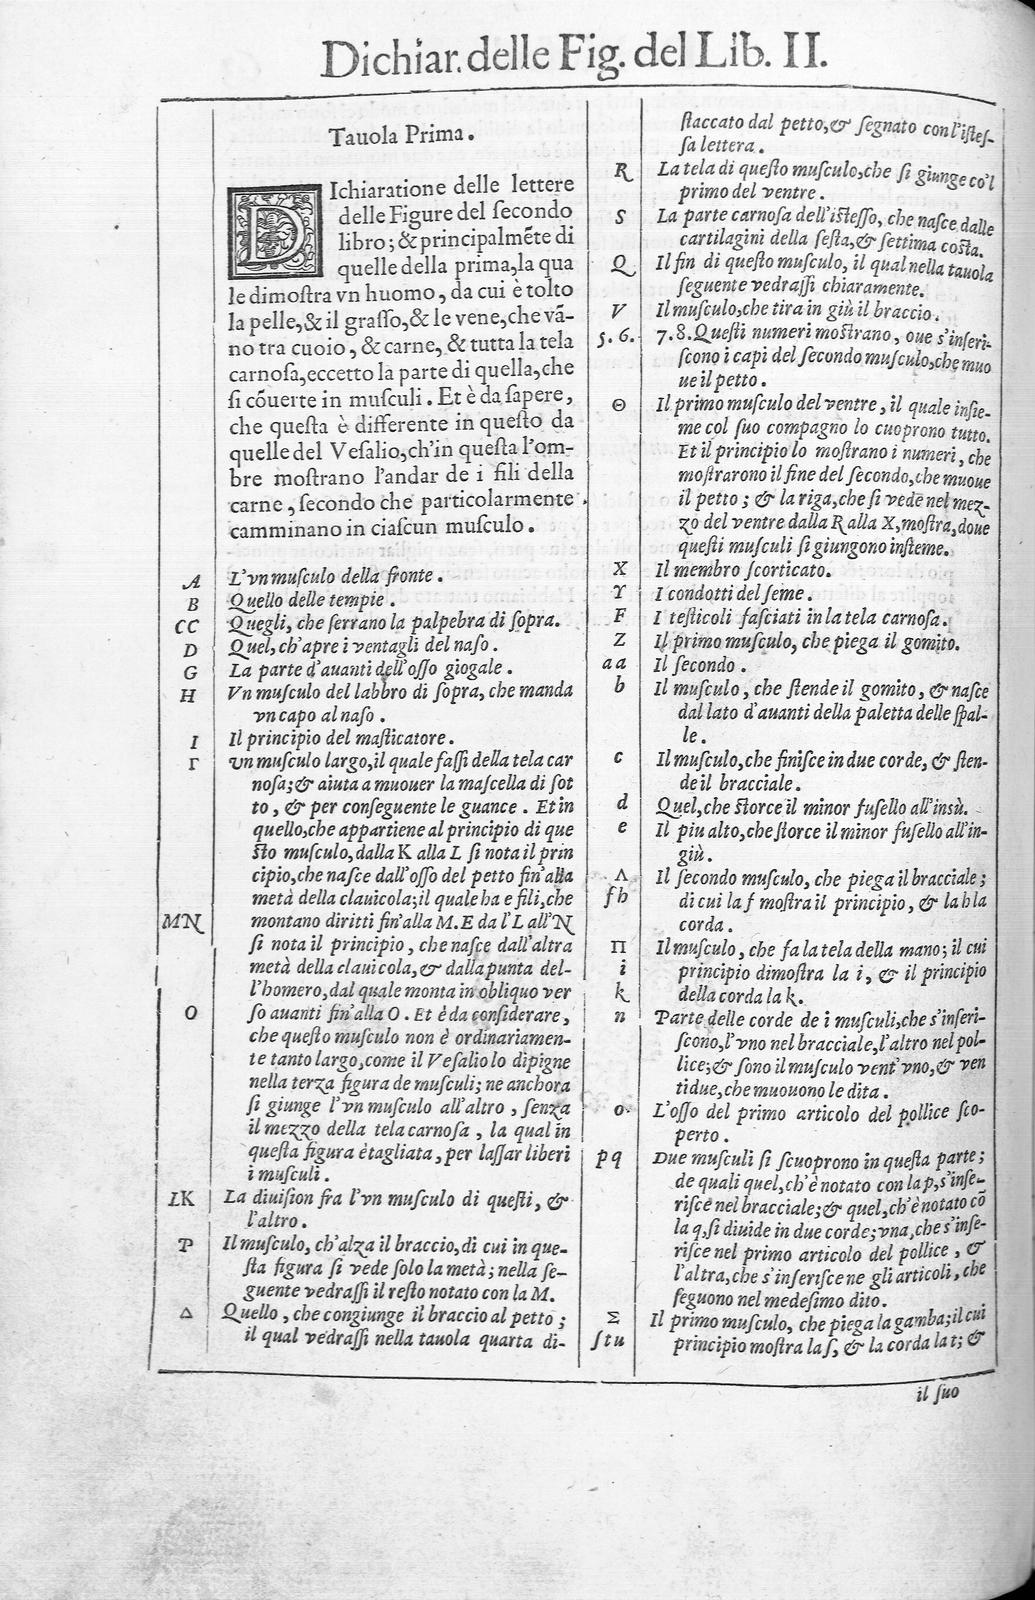 Dichiar. delle Fig. del Lib. II.
Tauola Prima.
DIchiaratione delle lettere
delle Figure del ſecondo
libro; & principalmẽte di
quelle della prima, la qua
le dimoſtra vn huomo, da cui è tolto
la pelle, & il graſſo, & le vene, che vã-
no tra cuoio, & carne, & tutta la tela
carnoſa, eccetto la parte di quella, che
ſi cõuerte in muſculi. Et è da ſapere,
che queſta è differente in queſto da
quelle del Veſalio, ch'in queſta l'om-
bre moſtrano l'andar de i fili della
carne, ſecondo che particolarmente
camminano in ciaſcun muſculo.
A L'vn muſculo della fronte.
B Quello delle tempie.
CC Quegli, che ſerrano la palpebra di ſopra.
D Quel, ch'apre i ventagli del naſo.
G La parte d'auanti dell'oſſo giogale.
H Vn muſculo del labbro di ſopra, che manda
vn capo al naſo.
I Il principio del maſticatore.
Γ vn muſculo largo, il quale faſſi della tela car
noſa; & aiuta a muouer la maſcella di ſot
to, & per conſeguente le guance. Et in
quello, che appartiene al principio di que
ſto muſculo, dalla K alla L ſi nota il prin
cipio, che naſce dall'oſſo del petto fin'alla
metà della clauicola; il quale ha e fili, che
MN montano diritti fin'alla M. E da l'L all'N
ſi nota il principio, che naſce dall'altra
metà della clauicola, & dalla punta del-
l'homero, dal quale monta in obliquo ver
O ſo auanti fin'alla O. Et è da conſiderare,
che queſto muſculo non è ordinariamen-
te tanto largo, come il Veſalio lo dipigne
nella terza figura de muſculi; ne anchora
ſi giunge l'vn muſculo all'altro, ſenza
il mezzo della tela carnoſa, la qual in
queſta figura è tagliata, per laſſar liberi
i muſculi.
LK La diuiſion fra l'vn muſculo di queſti, &
l'altro.
P Il muſculo, ch'alza il braccio, di cui in que-
ſta figura ſi vede ſolo la metà; nella ſe-
guente vedraſſi il reſto notato con la M.
Δ Quello, che congiunge il braccio al petto;
il qual vedraſſi nella tauola quarta di-
ſtaccato dal petto, & ſegnato con l'iſteſ-
ſa lettera.
R La tela di queſto muſculo, che ſi giunge co'l
primo del ventre.
S La parte carnoſa dell'iſteſſo, che naſce dalle
cartilagini della ſeſta, & ſettima coſta.
Q Il fin di queſto muſculo, il qual nella tauola
ſeguente vedraſſi chiaramente.
V Il muſculo, che tira in giù il braccio.
5. 6. 7. 8. Queſti numeri moſtrano, oue s'inſeri-
ſcono i capi del ſecondo muſculo, che muo
ue il petto.
Θ Il primo muſculo del ventre, il quale inſie-
me col ſuo compagno lo cuoprono tutto.
Et il principio lo moſtrano i numeri, che
moſtrarono il fine del ſecondo, che muoue
il petto; & la riga, che ſi vede nel mez-
zo del ventre dalla R alla X, moſtra, doue
queſti muſculi ſi giungono inſieme.
X Il membro ſcorticato.
Υ I condotti del ſeme.
F I teſticoli faſciati in la tela carnoſa.
Z Il primo muſculo, che piega il gomito.
aa Il ſecondo.
b Il muſculo, che ſtende il gomito, & naſce
dal lato d'auanti della paletta delle ſpal-
le.
c Il muſculo, che finiſce in due corde, & ſten-
de il bracciale.
d Quel, che ſtorce il minor fuſello all'insù.
e Il piu alto, che ſtorce il minor fuſello all'in-
giù.
Λ Il ſecondo muſculo, che piega il bracciale;
fh di cui la f moſtra il principio, & la h la
corda.
Π Il muſculo, che fa la tela della mano; il cui
i principio dimoſtra la i, & il principio
k della corda la k.
n Parte delle corde de i muſculi, che s'inſeri-
ſcono, l'vno nel bracciale, l'altro nel pol-
lice; & ſono il muſculo vent'vno, & ven
tidue, che muouono le dita.
o. L'oſſo del primo articolo del pollice ſco-
perto.
pq Due muſculi ſi ſcuoprono in queſta parte;
de quali quel, ch'è notato con la p, s'inſe-
riſce nel bracciale; & quel, ch'è notato cõ
la q, ſi diuide in due corde; vna, che s'inſe-
riſce nel primo articolo del pollice, &
l'altra, che s'inſeriſce ne gli articoli, che
ſeguono nel medeſimo dito.
Σ Il primo muſculo, che piega la gamba; il cui
ſtu principio moſtra la ſ, & la corda la t; &
il ſuo